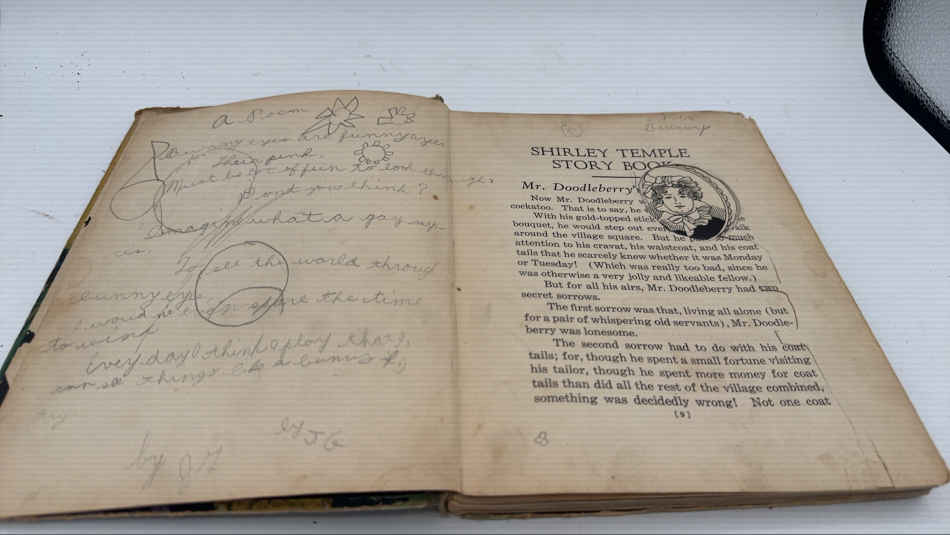 a Poem
Bunny eyes are funny eyes
for their pink.
Must be lot of fun to look through
Dont you think?
Imagine what a gay
To see the world throug
bunny eyes
I would never spare the time
to wink
Every day I think I play that I,
can see things like a bunny
by J G
by J G
Bunny
SHIRLEY TEMPLE
STORY BOOK
Mr. Doodleberry's
Now Mr. Doodleberry w
cockatoo. That is to say, he
With his gold-topped stick
bouquet, he would step out eve walk
around the village square. But he much
attention to his cravat, his waistcoat, and his coat
tails that he scarcely knew whether it was Monday
or Tuesday! (Which was really too bad, since he
was otherwise a very jolly and likeable fellow.)
But for all his airs, Mr. Doodleberry had two
secret sorrows.
The first sorrow was that, living all alone (but
for a pair of whispering old servants), Mr. Doodle-
berry was lonesome.
The second sorrow had to do with his coat
tails; for, though he spent a small fortune visiting
his tailor, though he spent more money for coat
tails than did all the rest of the village combined,
something was decidedly wrong! Not one coat
[9]